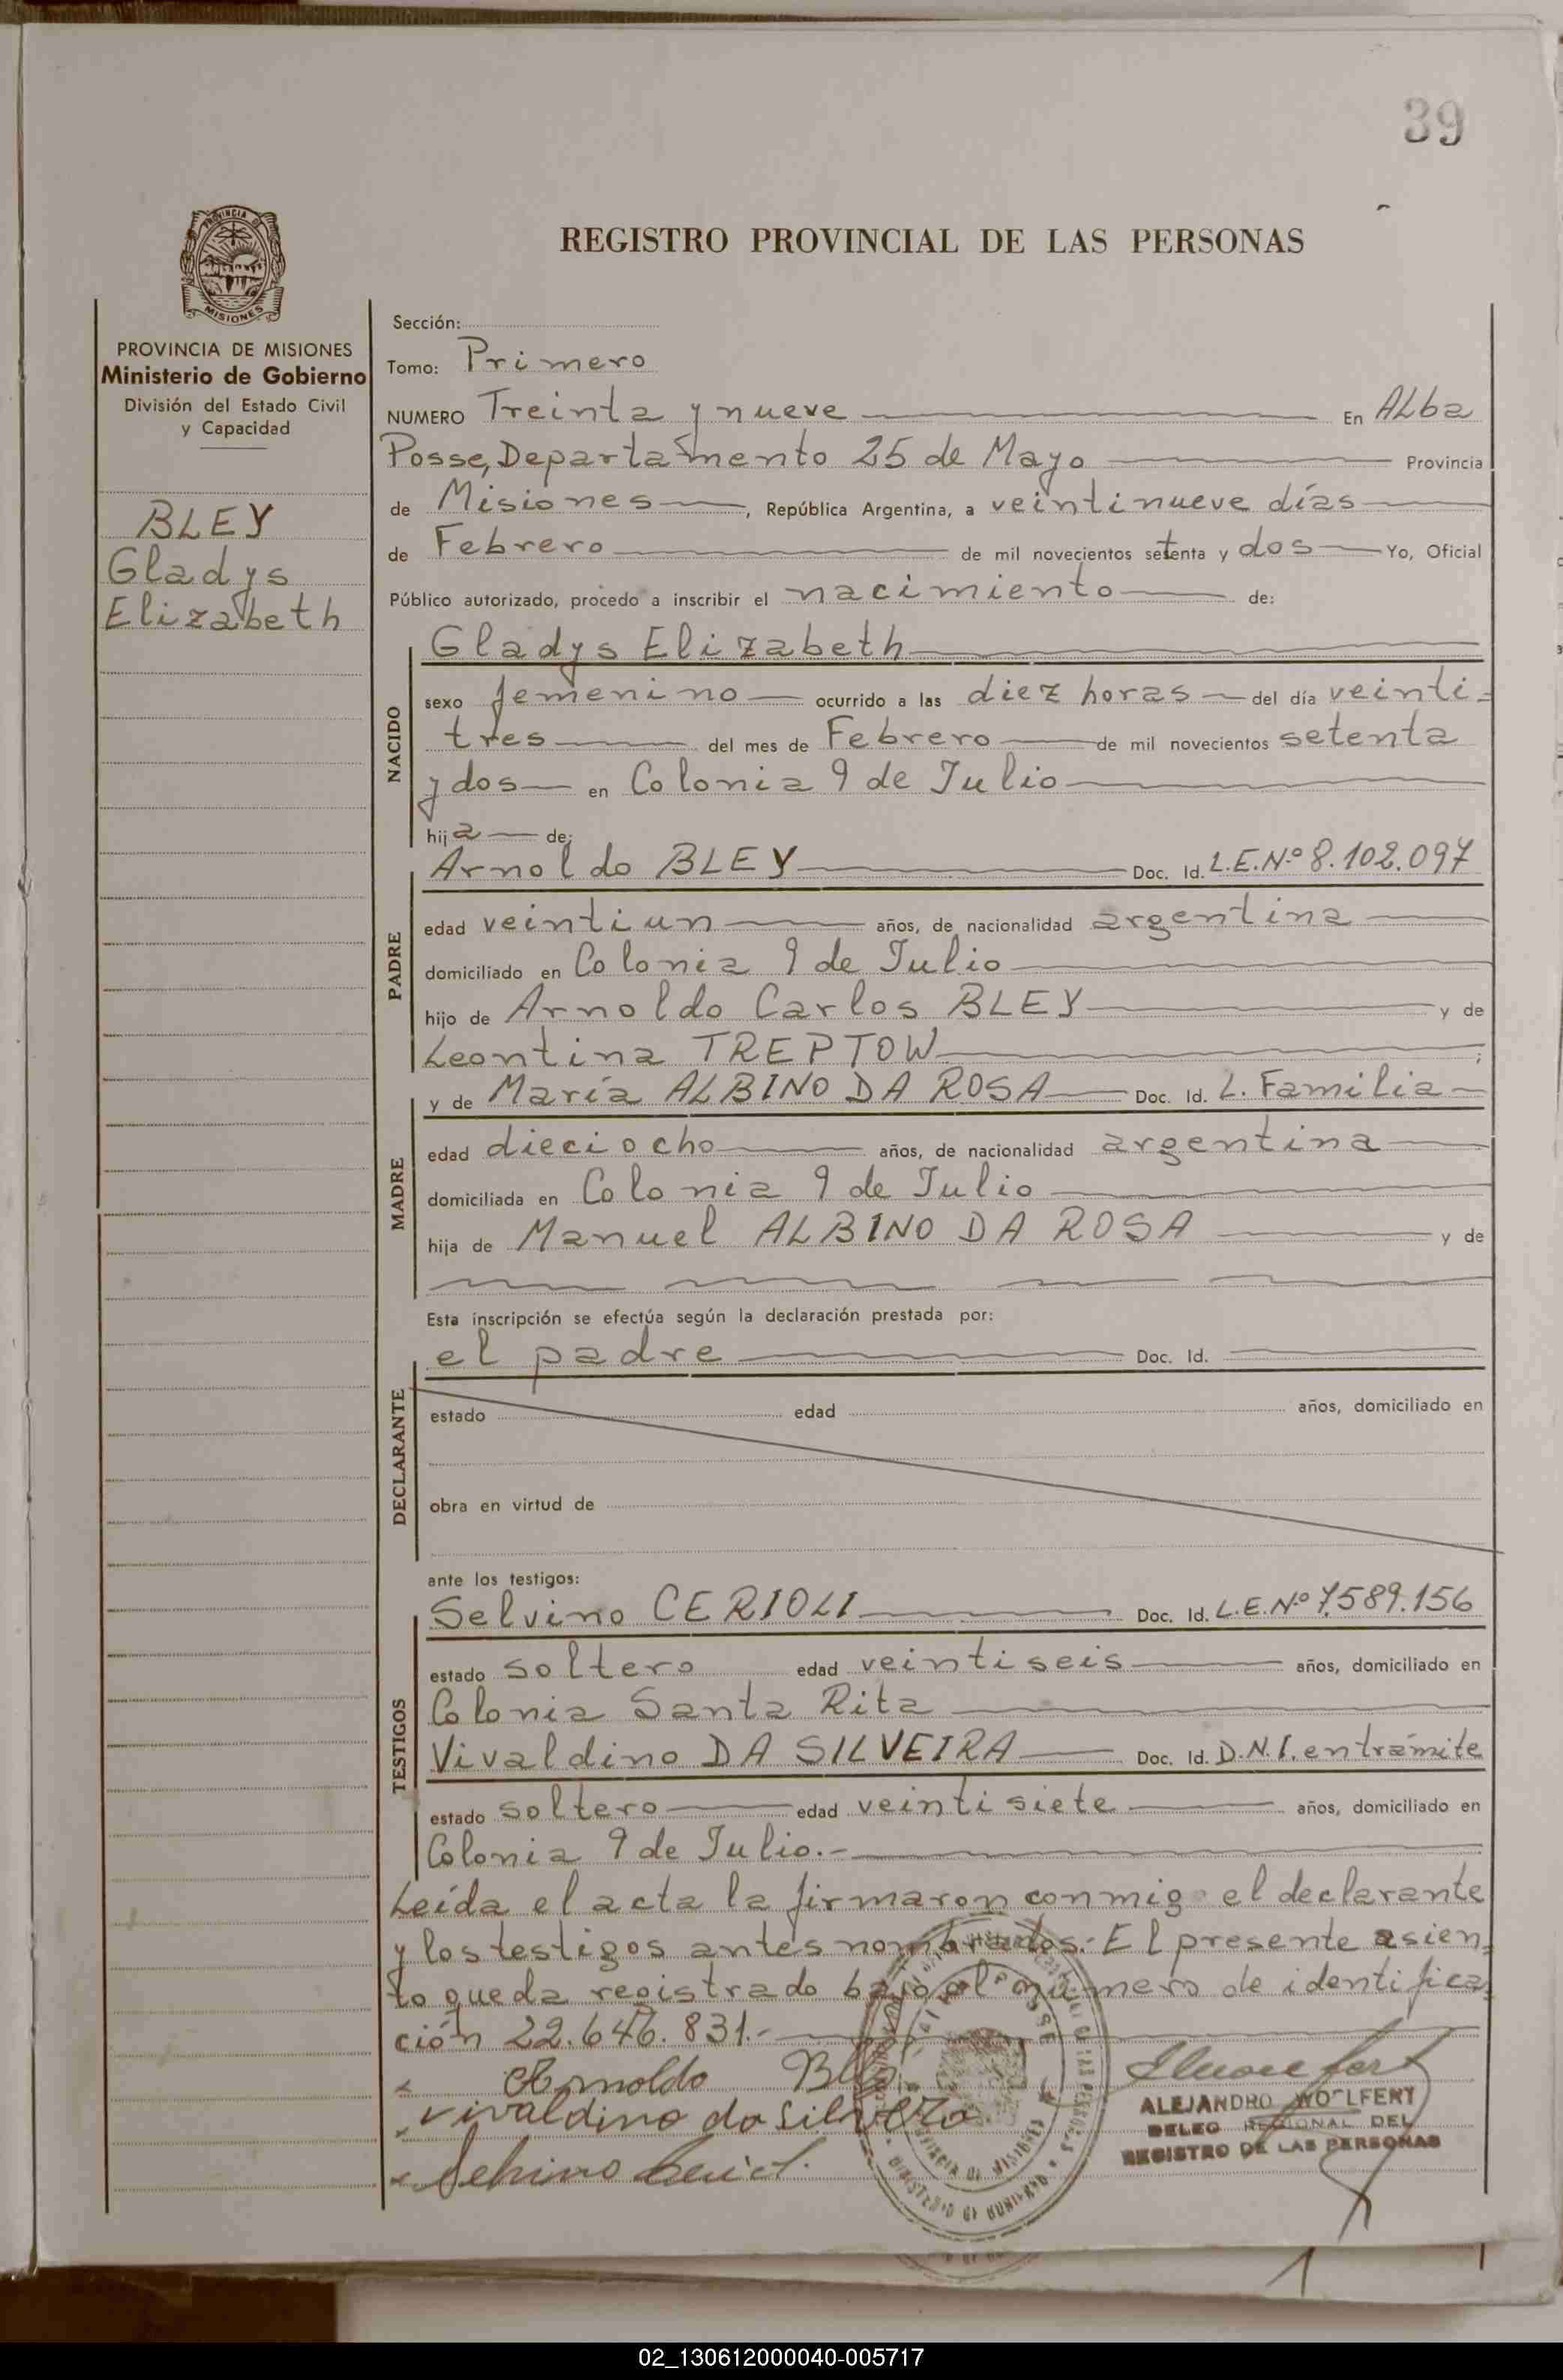 39
REGISTRO PROVINCIAL DE LAS PERSONAS
PROVINCIA DE
MISIONES
PROVINCIA DE MISIONES
Ministerio de Gobierno
División del Estado Civil
y Capacidad
BLEY
Gladys
Elizabeth
Sección:
Tomo: Primero
NUMERO Treinta y nueve En Alba
Posse, Departamento 25 de Mayo Provincia
de Misiones, República Argentina, a veintinueve días
de Febrero de mil novecientos setenta y dos Yo, Oficial
Público autorizado, procedo a inscribir el nacimiento de:
NACIDO
Gladys Elizabeth
sexo femenino ocurrido a las diez horas del día veinti-
tres del mes de Febrero de mil novecientos setenta
y dos en Colonia 9 de Julio
hija de:
PADRE
Arnoldo BLEY Doc. Id. L.E.Nº 8.102.097
edad veintiun años, de nacionalidad argentina
domiciliado en Colonia 9 de Julio
hijo de Arnoldo Carlos BLEY y de
Leontina TREPTOW;
MADRE
y de María ALBINO DA ROSA Doc. Id. L. Familia
edad dieciocho años, de nacionalidad argentina
domiciliada en Colonia 9 de Julio
hija de Manuel ALBINO DA ROSA y de
Esta inscripción se efectúa según la declaración prestada por:
DECLARANTE
el padre Doc. Id.
estado edad años, domiciliado en
obra en virtud de
ante los testigos:
TESTIGOS
Selvino CERIOLI Doc. Id. L.E.Nº 7.589.156
estado soltero edad veintiseis años, domiciliado en
Colonia Santa Rita
Vivaldino DA SILVEIRA Doc. Id. D.N.I. en trámite
estado soltero edad veintisiete años, domiciliado en
Colonia 9 de Julio.-
Leída el acta la firmaron conmigo el declarante
y los testigos antes nombrados.- El presente asien-
to queda registrado bajo el número de identifica-
ción 22.646.831.-
Arnoldo Bley
vivaldino da silveira
Selvino Cerioli
ALEJANDRO WOLFERT
DELEG REGIONAL DEL
REGISTRO DE LAS PERSONAS
02_130612000040-005717